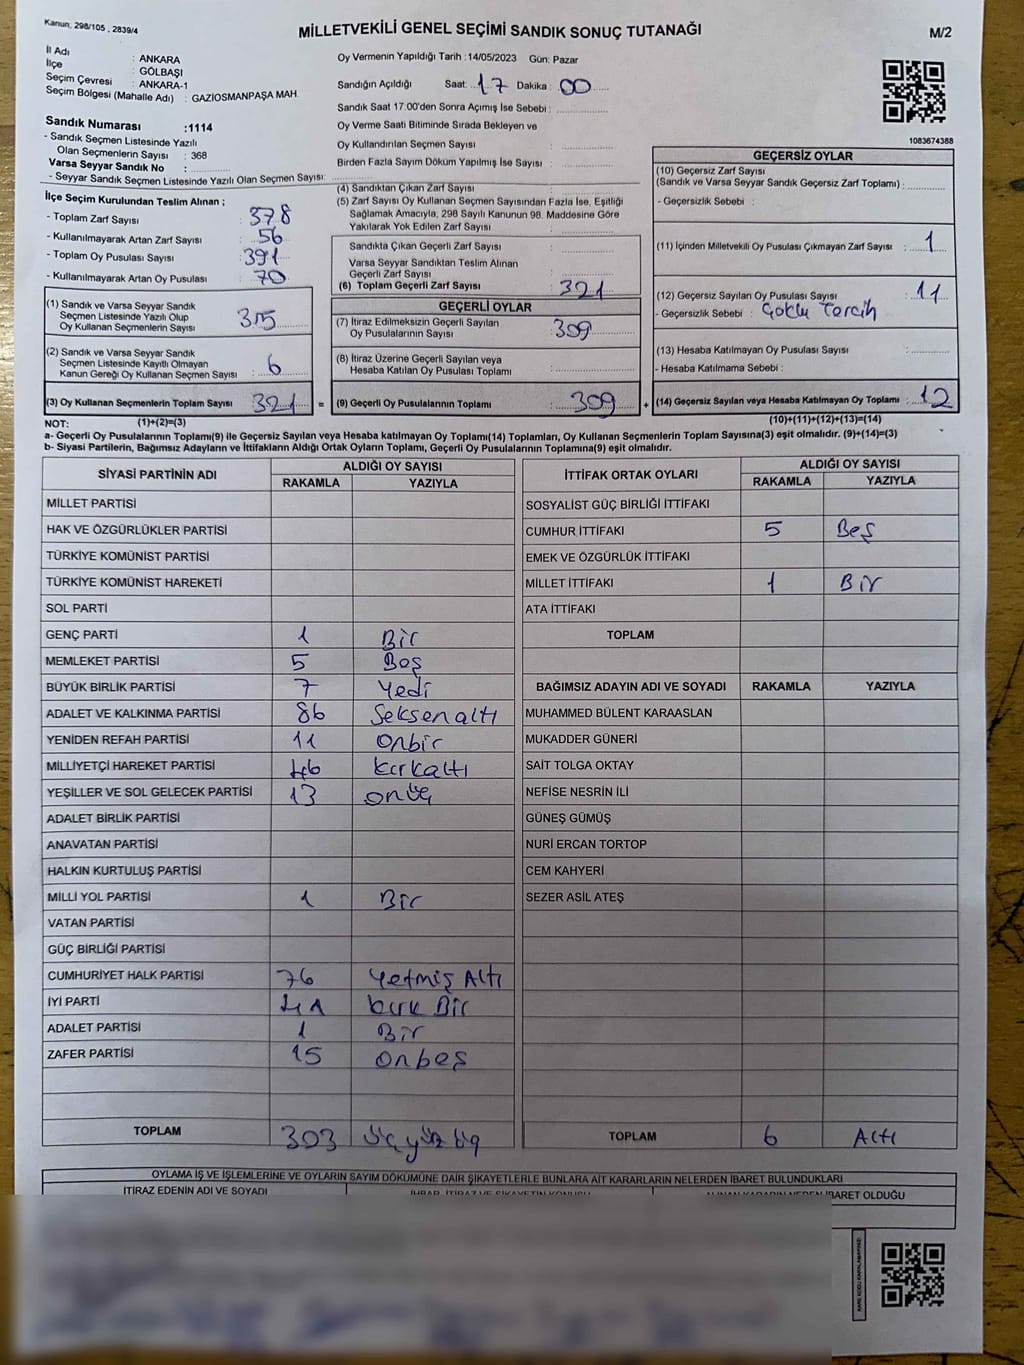 Kanun, 298/105 , 2839/4
MİLLETVEKİLİ GENEL SEÇİMİ SANDIK SONUÇ TUTANAĞI
M/2
İl Adı : ANKARA
İlçe : GÖLBAŞI
Seçim Çevresi : ANKARA-1
Seçim Bölgesi (Mahalle Adı) : GAZİOSMANPAŞA MAH.
Sandık Numarası :1114
- Sandık Seçmen Listesinde Yazılı
Olan Seçmenlerin Sayısı : 368
Varsa Seyyar Sandık No :
- Seyyar Sandık Seçmen Listesinde Yazılı Olan Seçmen Sayısı:
Oy Vermenin Yapıldığı Tarih :14/05/2023 Gün: Pazar
Sandığın Açıldığı Saat: 17 Dakika : 00
Sandık Saat 17:00'den Sonra Açımış İse Sebebi :
Oy Verme Saati Bitiminde Sırada Bekleyen ve
Oy Kullandırılan Seçmen Sayısı :
Birden Fazla Sayım Döküm Yapılmış İse Sayısı :
1083674388
İlçe Seçim Kurulundan Teslim Alınan ;
- Toplam Zarf Sayısı : 378
- Kullanılmayarak Artan Zarf Sayısı : 56
- Toplam Oy Pusulası Sayısı : 391
- Kullanılmayarak Artan Oy Pusulası : 70
(1) Sandık ve Varsa Seyyar Sandık
Seçmen Listesinde Yazılı Olup
Oy Kullanan Seçmenlerin Sayısı : 315
(2) Sandık ve Varsa Seyyar Sandık
Seçmen Listesinde Kayıtlı Olmayan
Kanun Gereği Oy Kullanan Seçmen Sayısı : 6
(3) Oy Kullanan Seçmenlerin Toplam Sayısı : 321 =
(4) Sandıktan Çıkan Zarf Sayısı :
(5) Zarf Sayısı Oy Kullanan Seçmen Sayısından Fazla İse, Eşitliği
Sağlamak Amacıyla, 298 Sayılı Kanunun 98. Maddesine Göre
Yakılarak Yok Edilen Zarf Sayısı :
Sandıkta Çıkan Geçerli Zarf Sayısı :
Varsa Seyyar Sandıktan Teslim Alınan
Geçerli Zarf Sayısı :
(6) Toplam Geçerli Zarf Sayısı : 321
GEÇERLİ OYLAR
(7) İtiraz Edilmeksizin Geçerli Sayılan
Oy Pusulalarının Sayısı : 309
(8) İtiraz Üzerine Geçerli Sayılan veya
Hesaba Katılan Oy Pusulası Toplamı :
(9) Geçerli Oy Pusulalarının Toplamı : 309 +
GEÇERSİZ OYLAR
(10) Geçersiz Zarf Sayısı
(Sandık ve Varsa Seyyar Sandık Geçersiz Zarf Toplamı) :
- Geçersizlik Sebebi :
(11) İçinden Milletvekili Oy Pusulası Çıkmayan Zarf Sayısı : 1
(12) Geçersiz Sayılan Oy Pusulası Sayısı : 11
- Geçersizlik Sebebi : Çoklu Tercih
(13) Hesaba Katılmayan Oy Pusulası Sayısı :
- Hesaba Katılmama Sebebi :
(14) Geçersiz Sayılan veya Hesaba Katılmayan Oy Toplamı : 12
NOT: (1)+(2)=(3) (10)+(11)+(12)+(13)=(14)
a- Geçerli Oy Pusulalarının Toplamı(9) ile Geçersiz Sayılan veya Hesaba katılmayan Oy Toplamı(14) Toplamları, Oy Kullanan Seçmenlerin Toplam Sayısına(3) eşit olmalıdır. (9)+(14)=(3)
b- Siyasi Partilerin, Bağımsız Adayların ve İttifakların Aldığı Ortak Oyların Toplamı, Geçerli Oy Pusulalarının Toplamına(9) eşit olmalıdır.
SİYASİ PARTİNİN ADI ALDIĞI OY SAYISI
RAKAMLA YAZIYLA
MİLLET PARTİSİ
HAK VE ÖZGÜRLÜKLER PARTİSİ
TÜRKİYE KOMÜNİST PARTİSİ
TÜRKİYE KOMÜNİST HAREKETİ
SOL PARTİ
GENÇ PARTİ 1 Bir
MEMLEKET PARTİSİ 5 Beş
BÜYÜK BİRLİK PARTİSİ 7 Yedi
ADALET VE KALKINMA PARTİSİ 86 Seksenaltı
YENİDEN REFAH PARTİSİ 11 Onbir
MİLLİYETÇİ HAREKET PARTİSİ 46 kırkaltı
YEŞİLLER VE SOL GELECEK PARTİSİ 13 onüç
ADALET BİRLİK PARTİSİ
ANAVATAN PARTİSİ
HALKIN KURTULUŞ PARTİSİ
MİLLİ YOL PARTİSİ 1 Bir
VATAN PARTİSİ
GÜÇ BİRLİĞİ PARTİSİ
CUMHURİYET HALK PARTİSİ 76 Yetmiş Altı
İYİ PARTİ 41 kırk Bir
ADALET PARTİSİ 1 Bir
ZAFER PARTİSİ 15 onbeş
TOPLAM 303 üçyüz üç
İTTİFAK ORTAK OYLARI ALDIĞI OY SAYISI
RAKAMLA YAZIYLA
SOSYALİST GÜÇ BİRLİĞİ İTTİFAKI
CUMHUR İTTİFAKI 5 Beş
EMEK VE ÖZGÜRLÜK İTTİFAKI
MİLLET İTTİFAKI 1 Bir
ATA İTTİFAKI
TOPLAM
BAĞIMSIZ ADAYIN ADI VE SOYADI RAKAMLA YAZIYLA
MUHAMMED BÜLENT KARAASLAN
MUKADDER GÜNERİ
SAİT TOLGA OKTAY
NEFİSE NESRİN İLİ
GÜNEŞ GÜMÜŞ
NURİ ERCAN TORTOP
CEM KAHYERİ
SEZER ASİL ATEŞ
TOPLAM 6 Altı
OYLAMA İŞ VE İŞLEMLERİNE VE OYLARIN SAYIM DÖKÜMÜNE DAİR ŞİKAYETLERLE BUNLARA AİT KARARLARIN NELERDEN İBARET BULUNDUKLARI
İTİRAZ EDENİN ADI VE SOYADI İBARET OLDUĞU